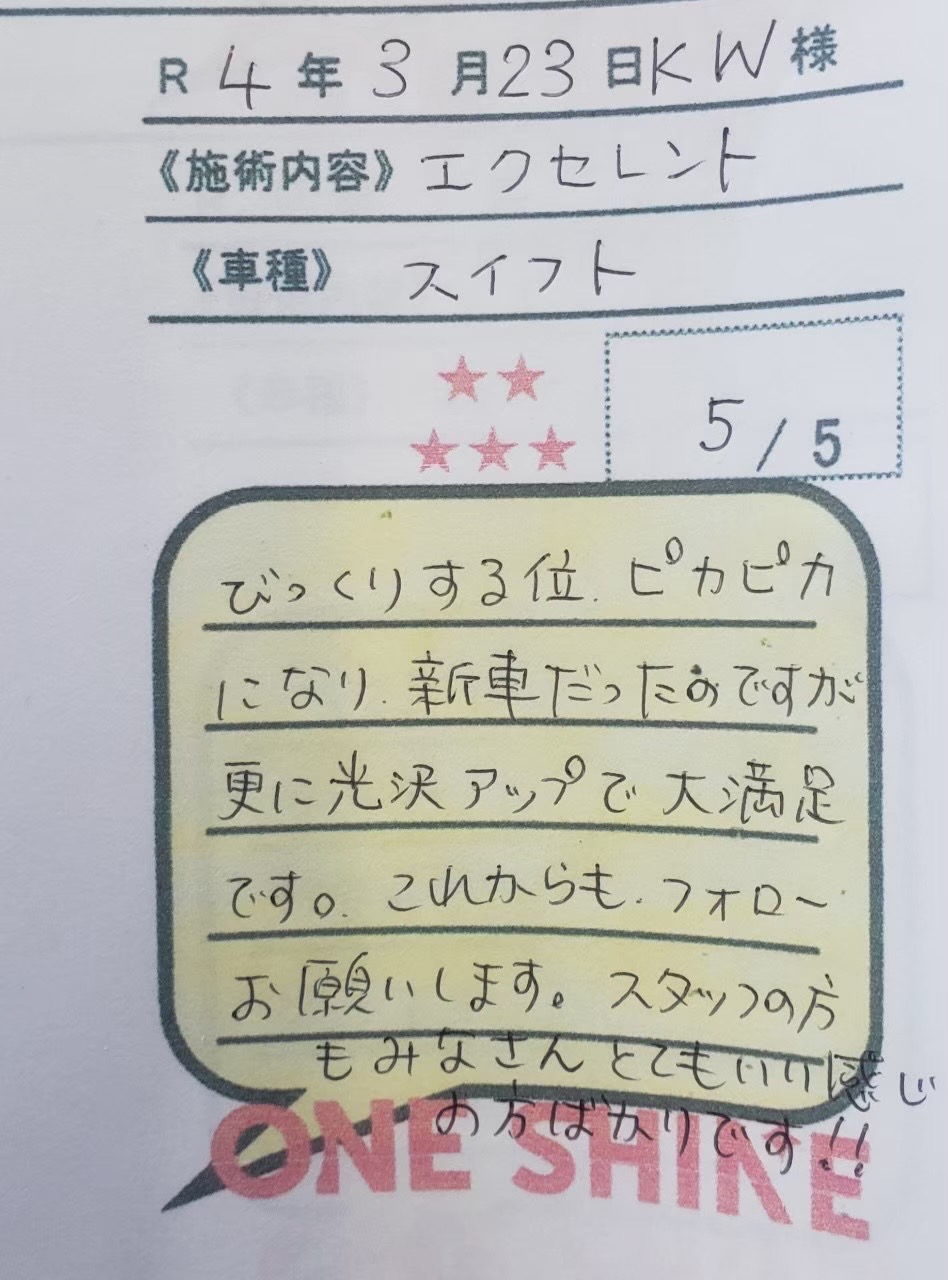 R 4 年 3 月 23 日 KW 様
《施術内容》 エクセレント
《車種》 スイフト
★★
★★★
5/5
びっくりする位、ピカピカ
になり、新車だったのですが
更に光沢アップで大満足
です。これからも、フォロー
お願いします。スタッフの方
もみなさんとてもいい感じ
の方ばかりです!!
ONE SHINE